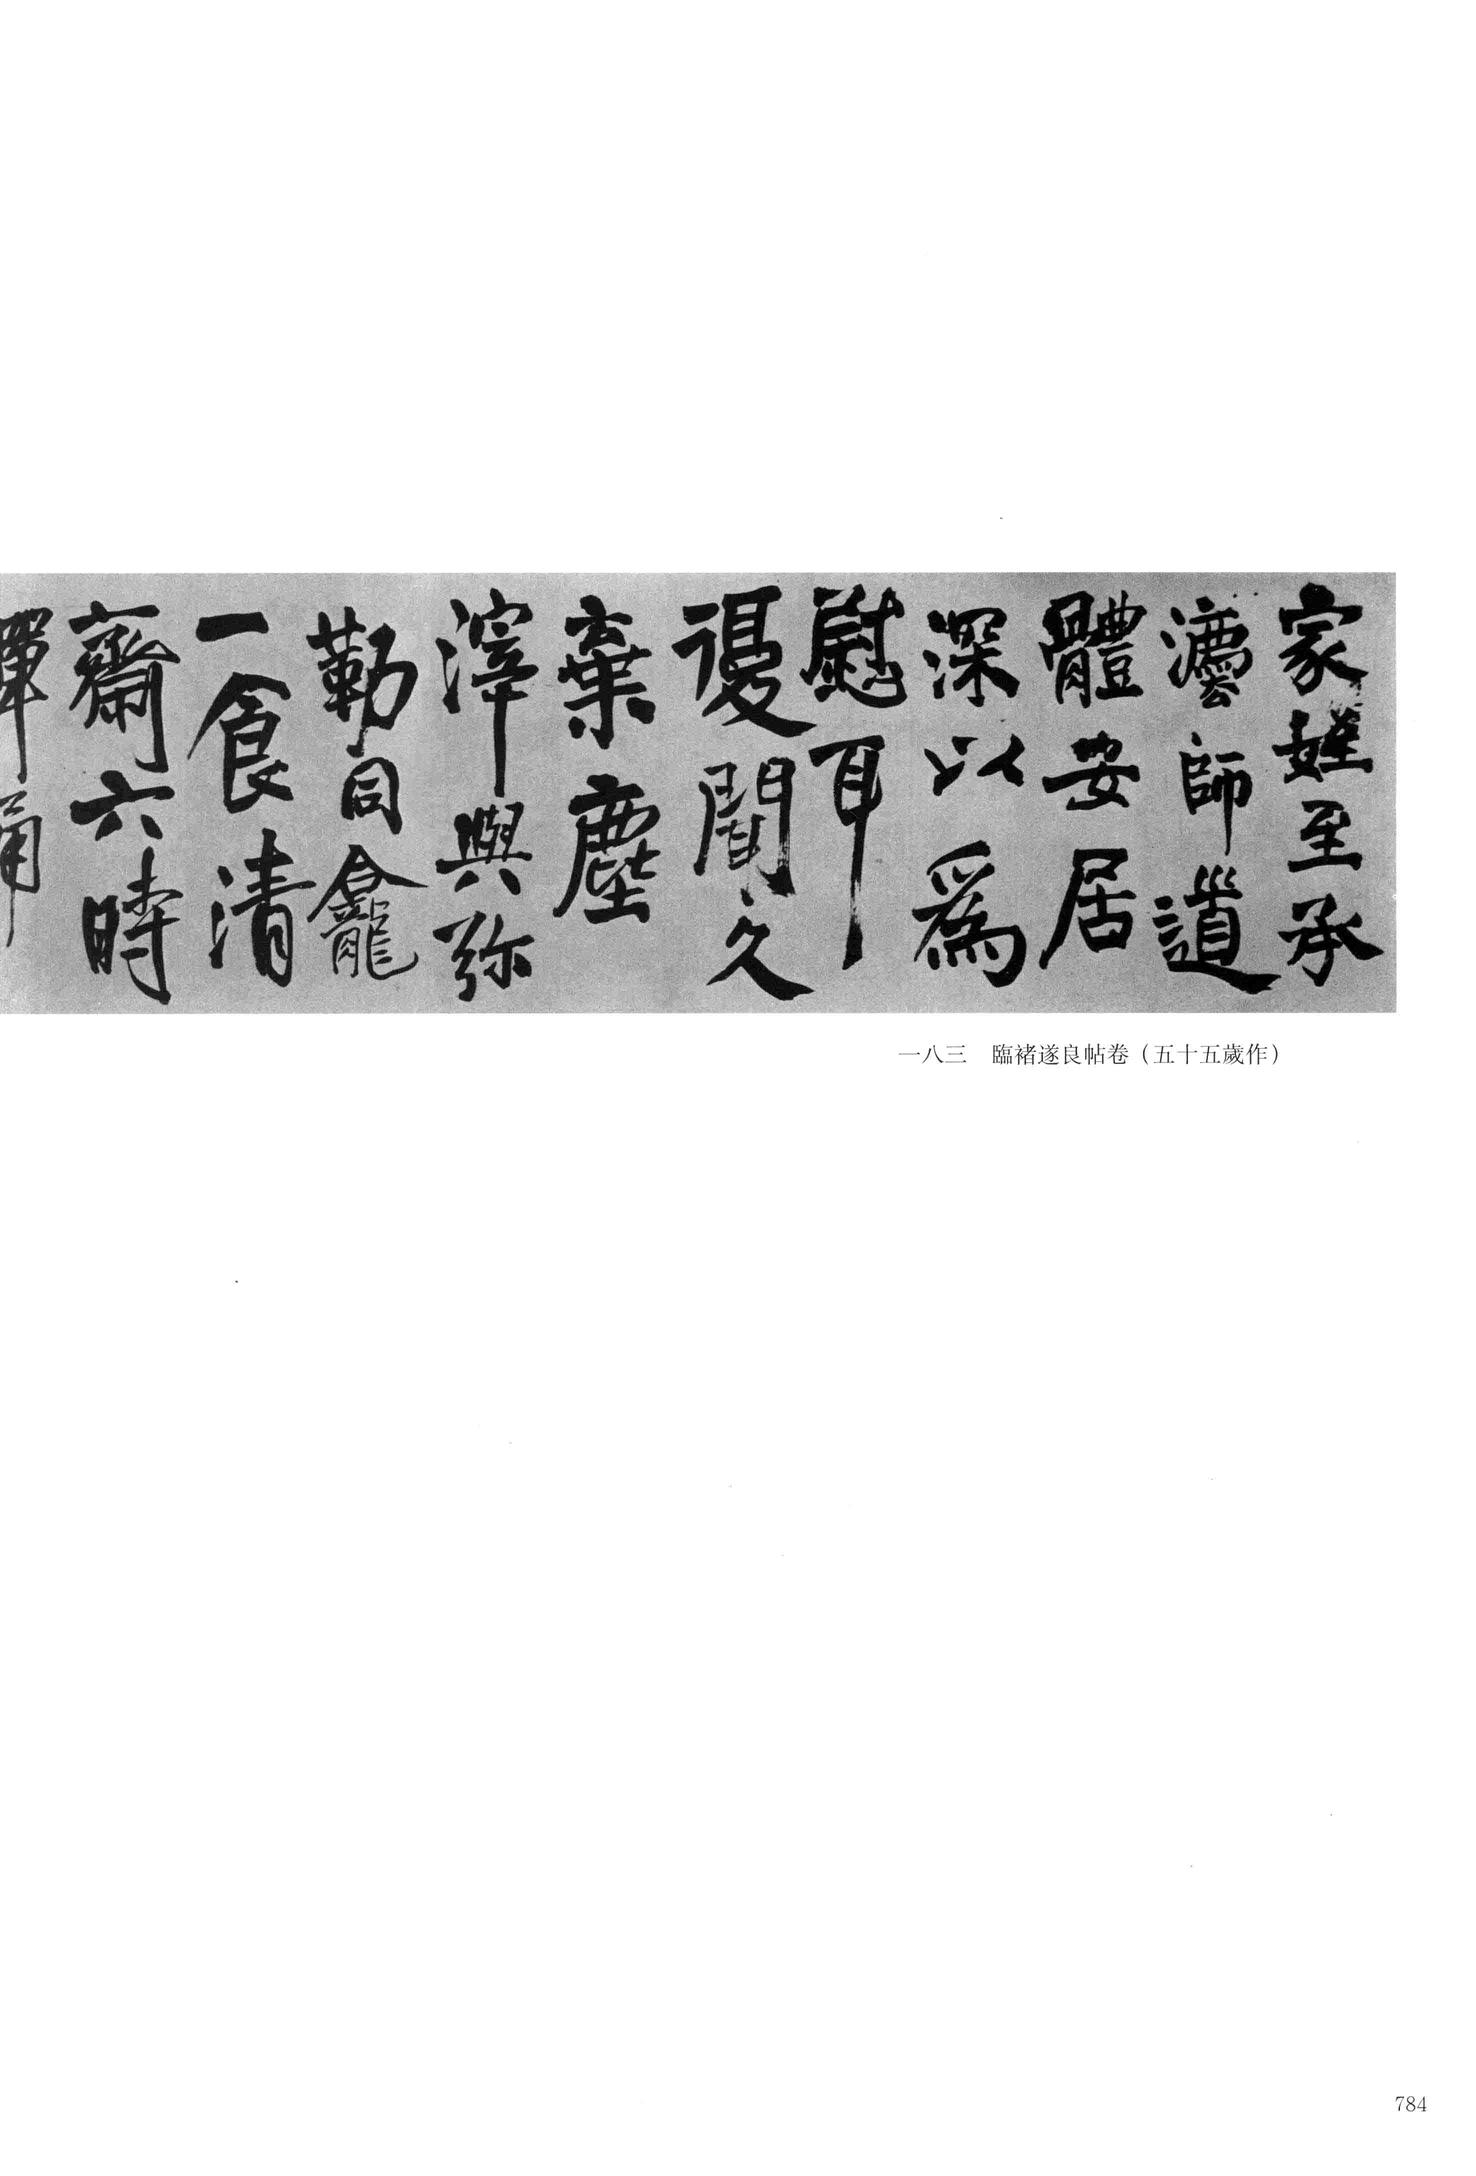 家姪至承
法師道
體安居
深以爲
慰耳
復聞久
棄塵
滓與彌
勒同龕
一食清
齋六時
禪誦
一八三 臨褚遂良帖卷（五十五歲作）
784